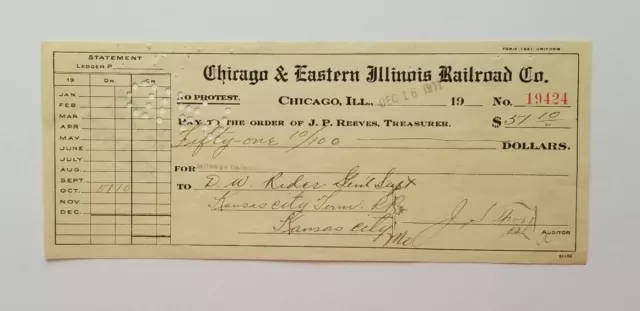 FORM 1481
STATEMENT
LEDGER P.
19 DR. CR.
JAN.
FEB.
MAR.
APR.
MAY
JUNE
JULY
AUG.
SEPT.
OCT. 5110
NOV.
DEC.
Chicago & Eastern Illinois Railroad Co.
NO PROTEST. CHICAGO, ILL., DEC 16 19 No. 19424
PAY TO THE ORDER OF J. P. REEVES, TREASURER. $51 10
Fifty-one 10/100 DOLLARS.
FOR Mileage
TO D. W. Rider Gen'l Supt
Kansas city Term. R.R.
Kansas city Mo
J. S. AUDITOR